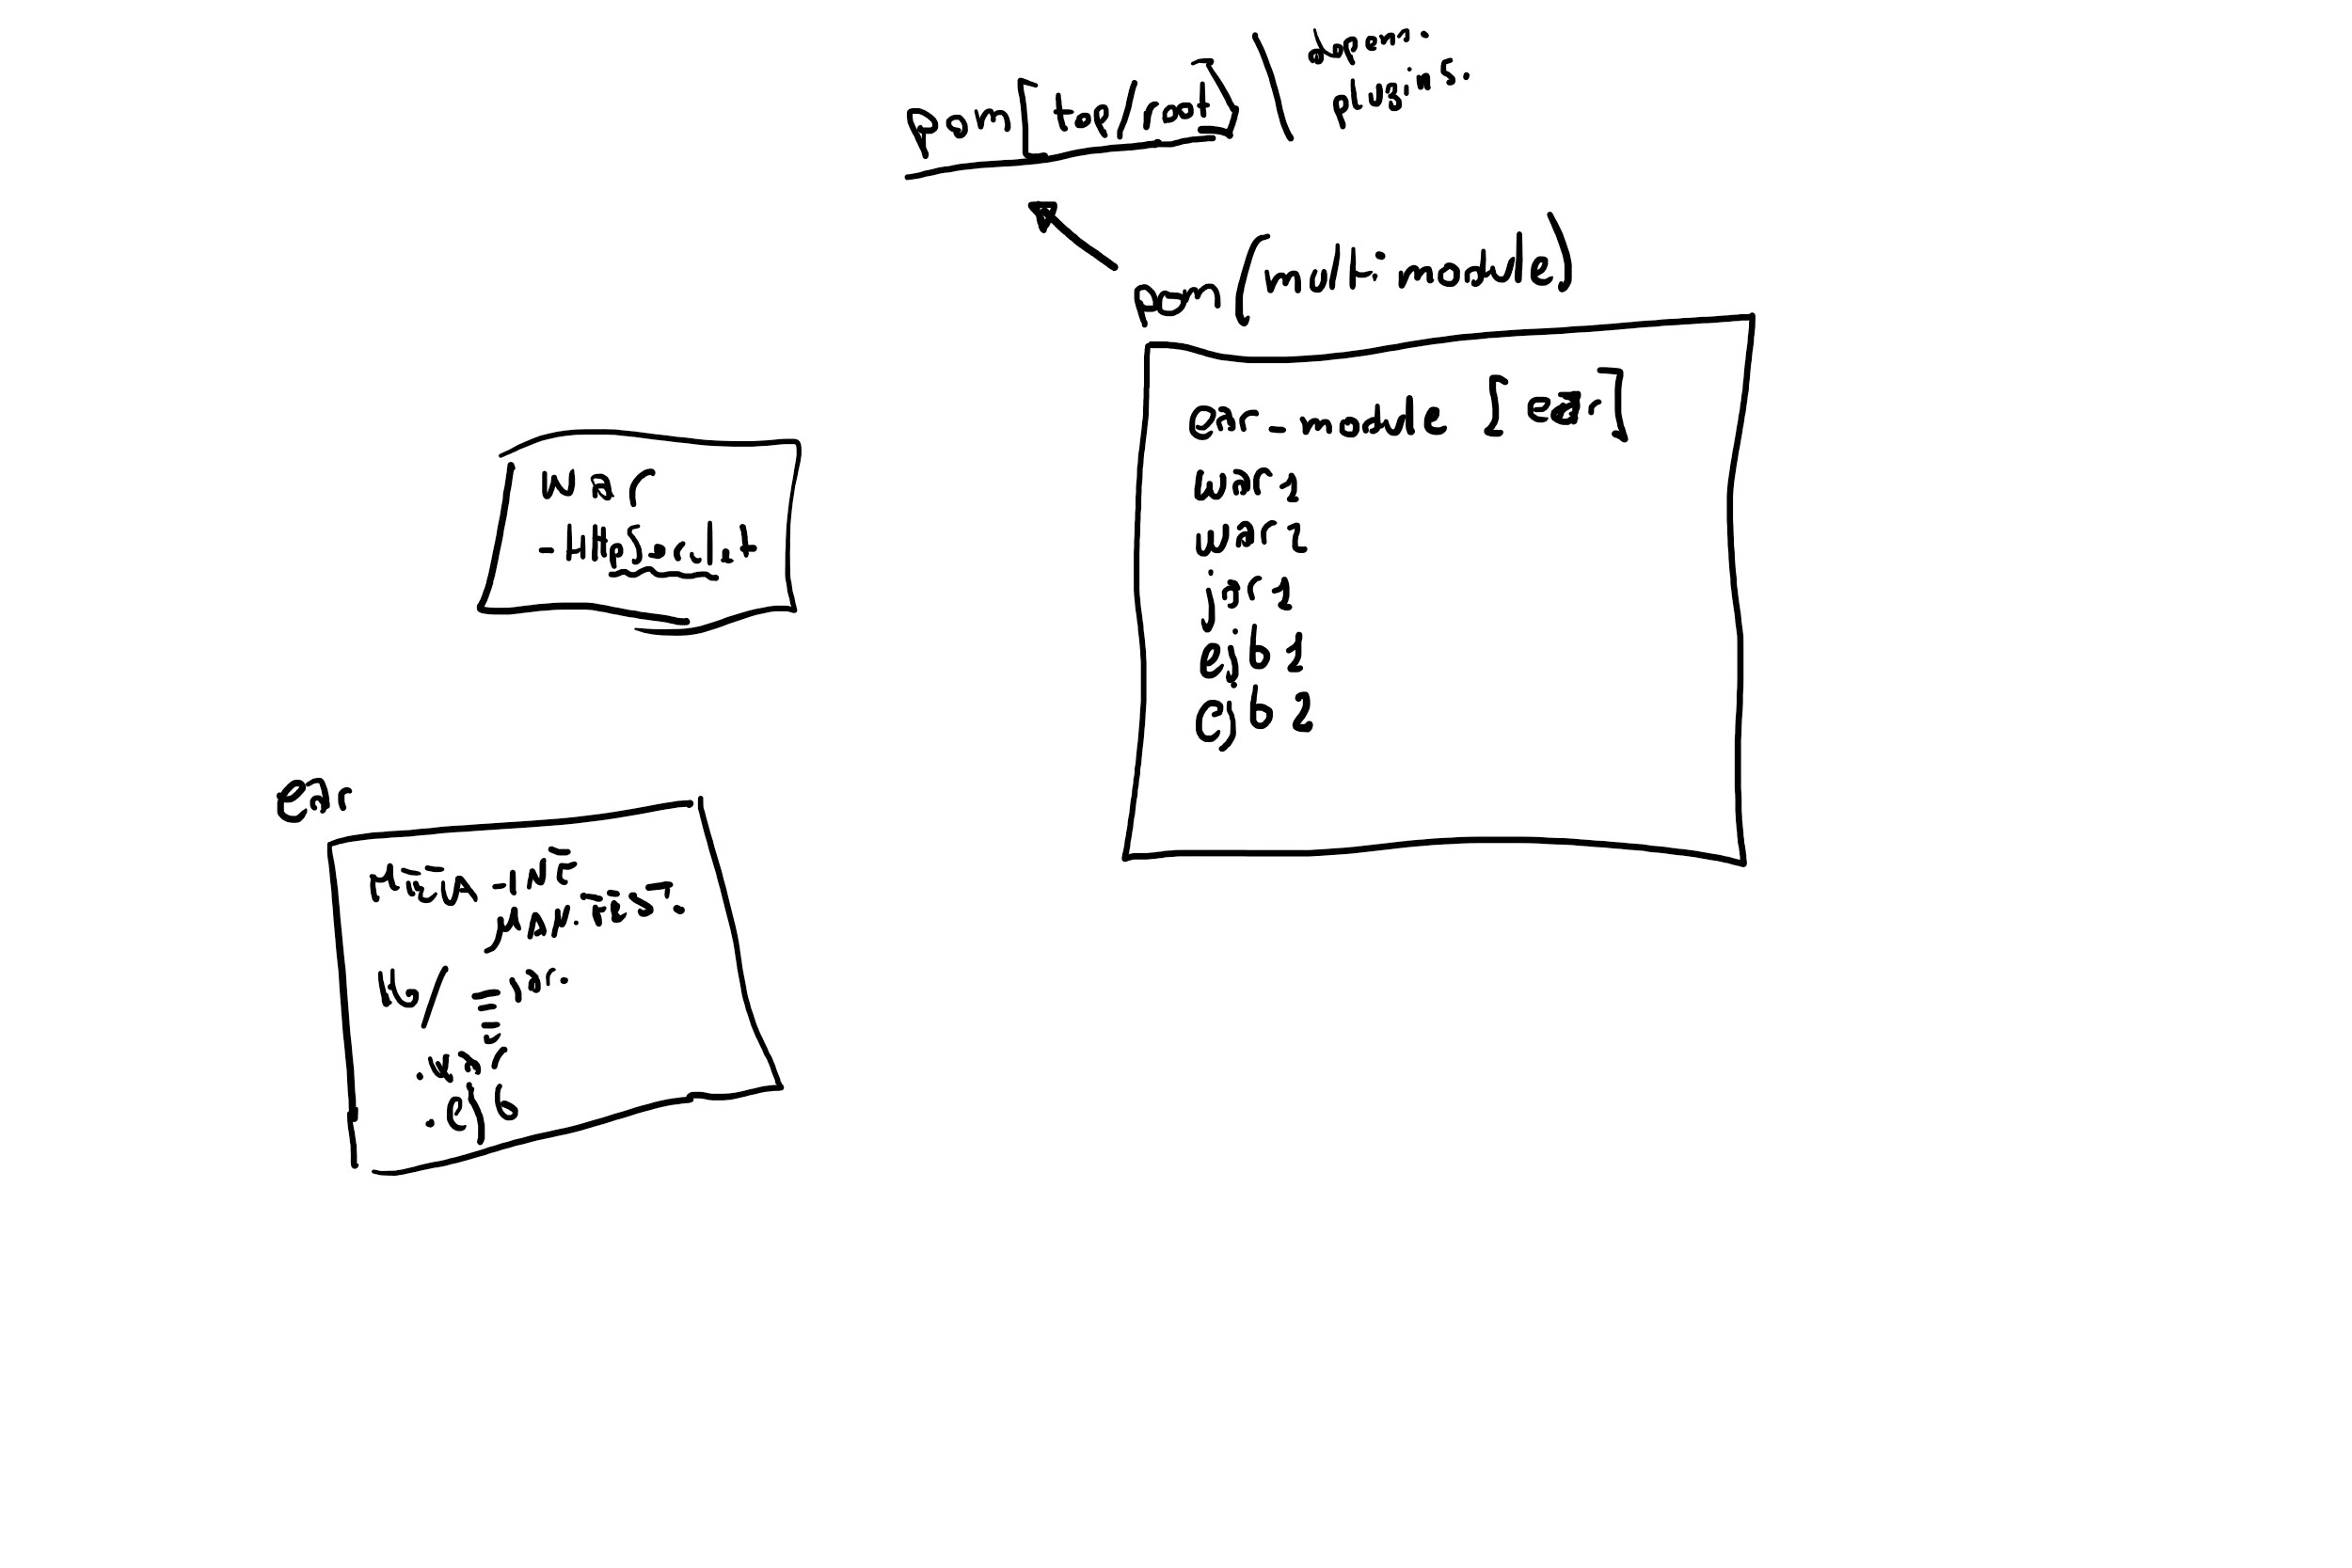 pom [top/root] | depen.
plugins.
pom (multi module)
ear-module [ear]
war 1
war 2
jar 1
ejb 1
ejb 2
war
- HttpServlet
ear
META-INF
MANIFEST.
lib/ jar.
.war
.ejb